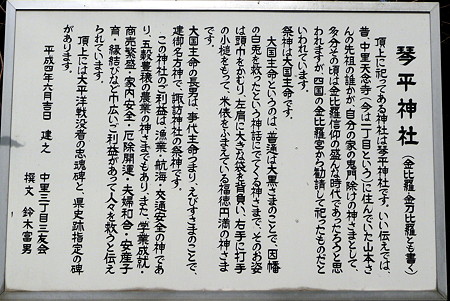 琴平神社（金比羅・金刀比羅とも書く）
頂上に祀ってある神社は琴平神社です。いい伝えでは、
昔、中里天念寺（今は二丁目という）に住んでいた山本さ
んの先祖の誰かが、自分の家の鬼門除けの神さまとして、
多分その頃は金比羅信仰の盛んな時代であったろうと思
われますが、四国の金比羅宮から勧請して祀ったものだと
いわれています。
祭神は大国主命です。
大国主命というのは、普通は大黒さまのことで、因幡
の白兎を救ったという神話にでてくる神さまで、そのお姿
は頭巾をかむり、左肩に大きな袋を背負い、右手に打手
の小槌をもって、米俵をふまえている福徳円満の神さま
です。
大国主命の長男は、事代主命つまりえびすさまのことで、
建御名方神で、諏訪神社の祭神です。
この神社のご利益は、漁業、航海、交通安全の神であ
り、五穀豊穣の農業の神さまでもあり、また、学業成就・
商売繁盛・家内安全・厄除開運・夫婦和合・安産子
育・縁結びなど巾広いご利益があって人々を救うと伝え
られています。
頂上には太平洋戦没者の忠魂碑と、県史跡指定の碑
があります。
平成四年六月吉日 建之
中里三丁目三友会
撰文 鈴木富男